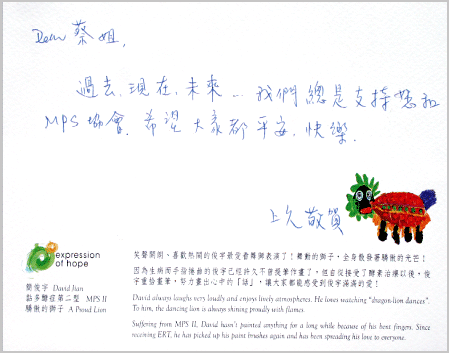 Dear 蔡姐,
過去.現在.未來... 我們總是支持您和
MPS協會.希望大家都平安.快樂.
上久敬賀
expression
of hope
簡俊字 David Jian
黏多醣症第二型 MPS II
驕傲的獅子 A Proud Lion
笑聲開朗、喜歡熱鬧的俊字最愛看舞獅表演了!舞動的獅子,全身散發著驕傲的光芒!
因為生病而手指捲曲的俊字已經許久不曾提筆作畫了,但自從接受了酵素治療以後,俊
字重拾畫筆,努力畫出心中的「話」,讓大家都能感受到俊字滿滿的愛!
David always laughs very loudly and enjoys lively atmospheres. He loves watching "dragon-lion dances".
To him, the dancing lion is always shining proudly with flames.
Suffering from MPS II, David hasn't painted anything for a long while because of his bent fingers. Since
receiving ERT, he has picked up his paint brushes again and has been spreading his love to everyone.